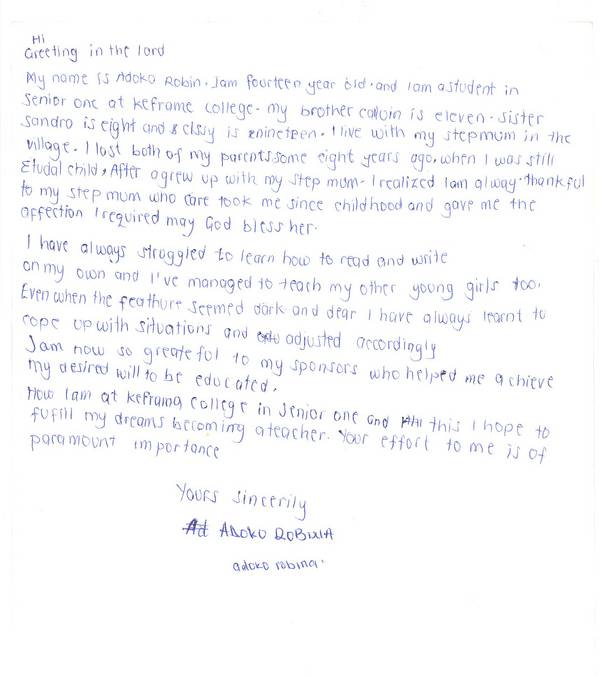 Hi
Greeting in the lord
My name is Adoko Robin. Jam fourteen year old. and I am a student in
Senior one at keframe college. my brother calvin is eleven. sister
sandra is eight and clssy is nineteen. I live with my stepmum in the
village. I lost both of my parents some eight years ago, when I was still
child, After agrew up with my step mum. I realized I am alway. thankful
to my step mum who care took me since childhood and gave me the
affection I required may God bless her.
I have always struggled to learn how to read and write
on my own and I've managed to teach my other young girls too.
Even when the feathure seemed dark and dear I have always learnt to
cope up with situations and adjusted accordingly
Jam now so greateful to my sponsors who helped me achieve
my desired will to be educated.
Now I am at keframa college in Senior one and this I hope to
fufill my dreams becoming a teacher. Your effort to me is of
paramount importance
Yours sincerily
Ad ADOKO ROBINA
adoko robina.